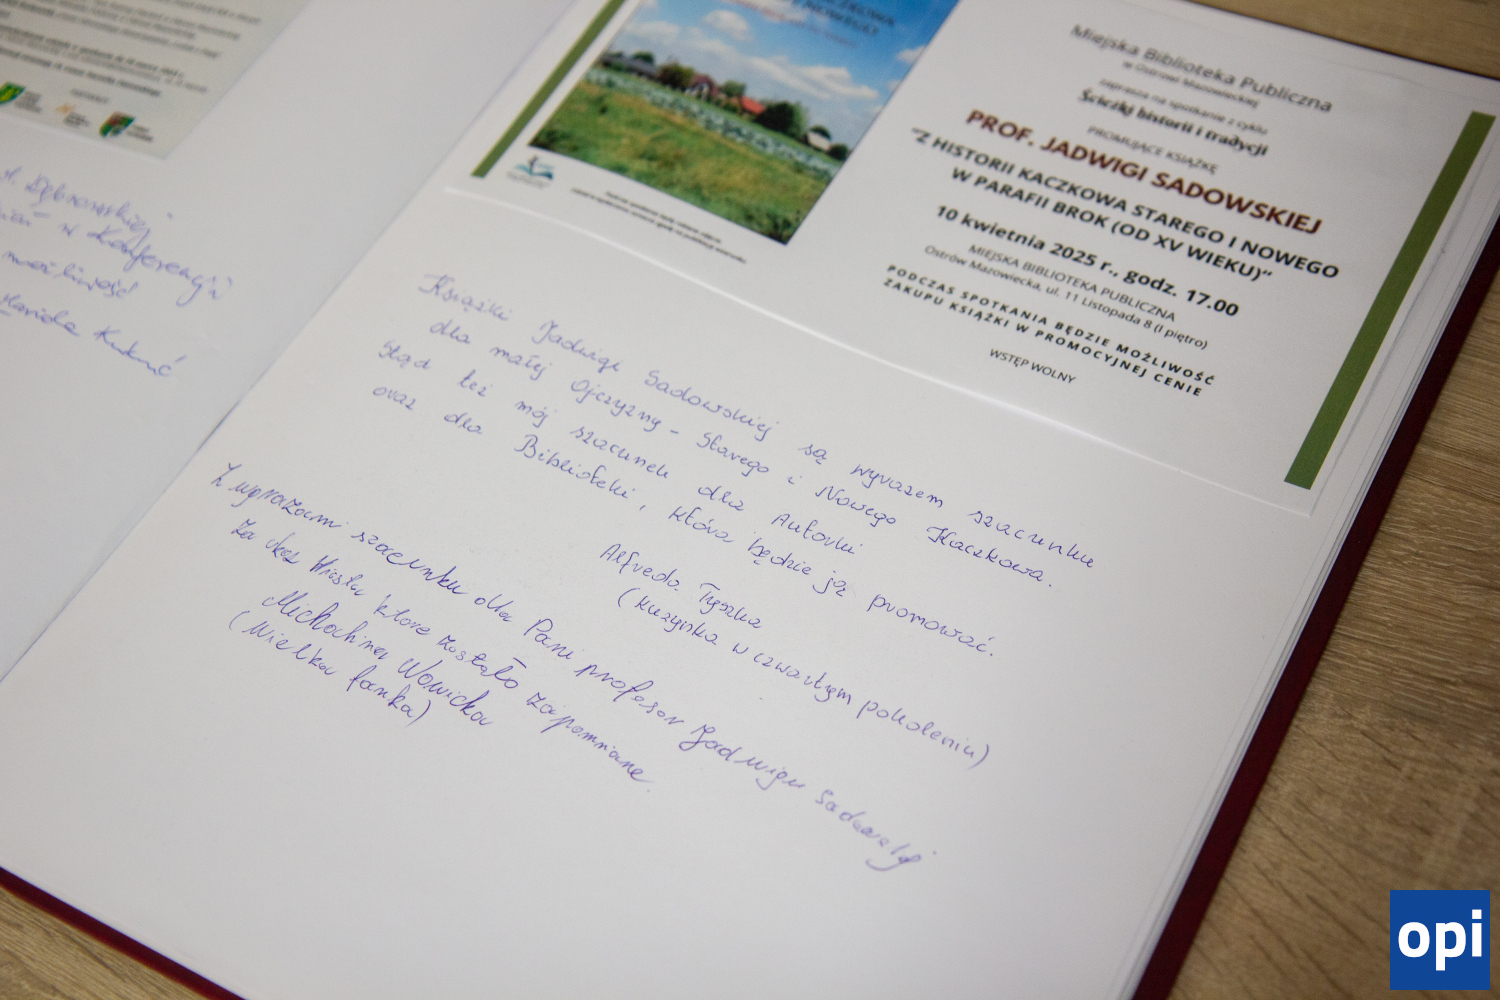 A. Dąbrowskiej
w Konferencji
możliwość
Kukuć
KACZKOWA
I NOWEGO
Miejska Biblioteka Publiczna
w Ostrowi Mazowieckiej
zaprasza na spotkanie z cyklu
Ścieżki historii i tradycji
PROMUJĄCE KSIĄŻKĘ
PROF. JADWIGI SADOWSKIEJ
"Z HISTORII KACZKOWA STAREGO I NOWEGO
W PARAFII BROK (OD XV WIEKU)"
10 kwietnia 2025 r., godz. 17.00
MIEJSKA BIBLIOTEKA PUBLICZNA
Ostrów Mazowiecka, ul. 11 Listopada 8 (I piętro)
PODCZAS SPOTKANIA BĘDZIE MOŻLIWOŚĆ
ZAKUPU KSIĄŻKI W PROMOCYJNEJ CENIE
WSTĘP WOLNY
Książki Jadwigi Sadowskiej są wyrazem szacunku
dla małej Ojczyzny - Starego i Nowego Kaczkowa.
Stąd też mój szacunek dla Autorki
oraz dla Biblioteki, która będzie ją promować.
Alfreda Tyszka
(kuzynka w czwartym pokoleniu)
Z wyrazami szacunku dla Pani profesor Jadwigi Sadowskiej
za które zostało zapomniane.
Michalina
(Wielka fanka)
opi